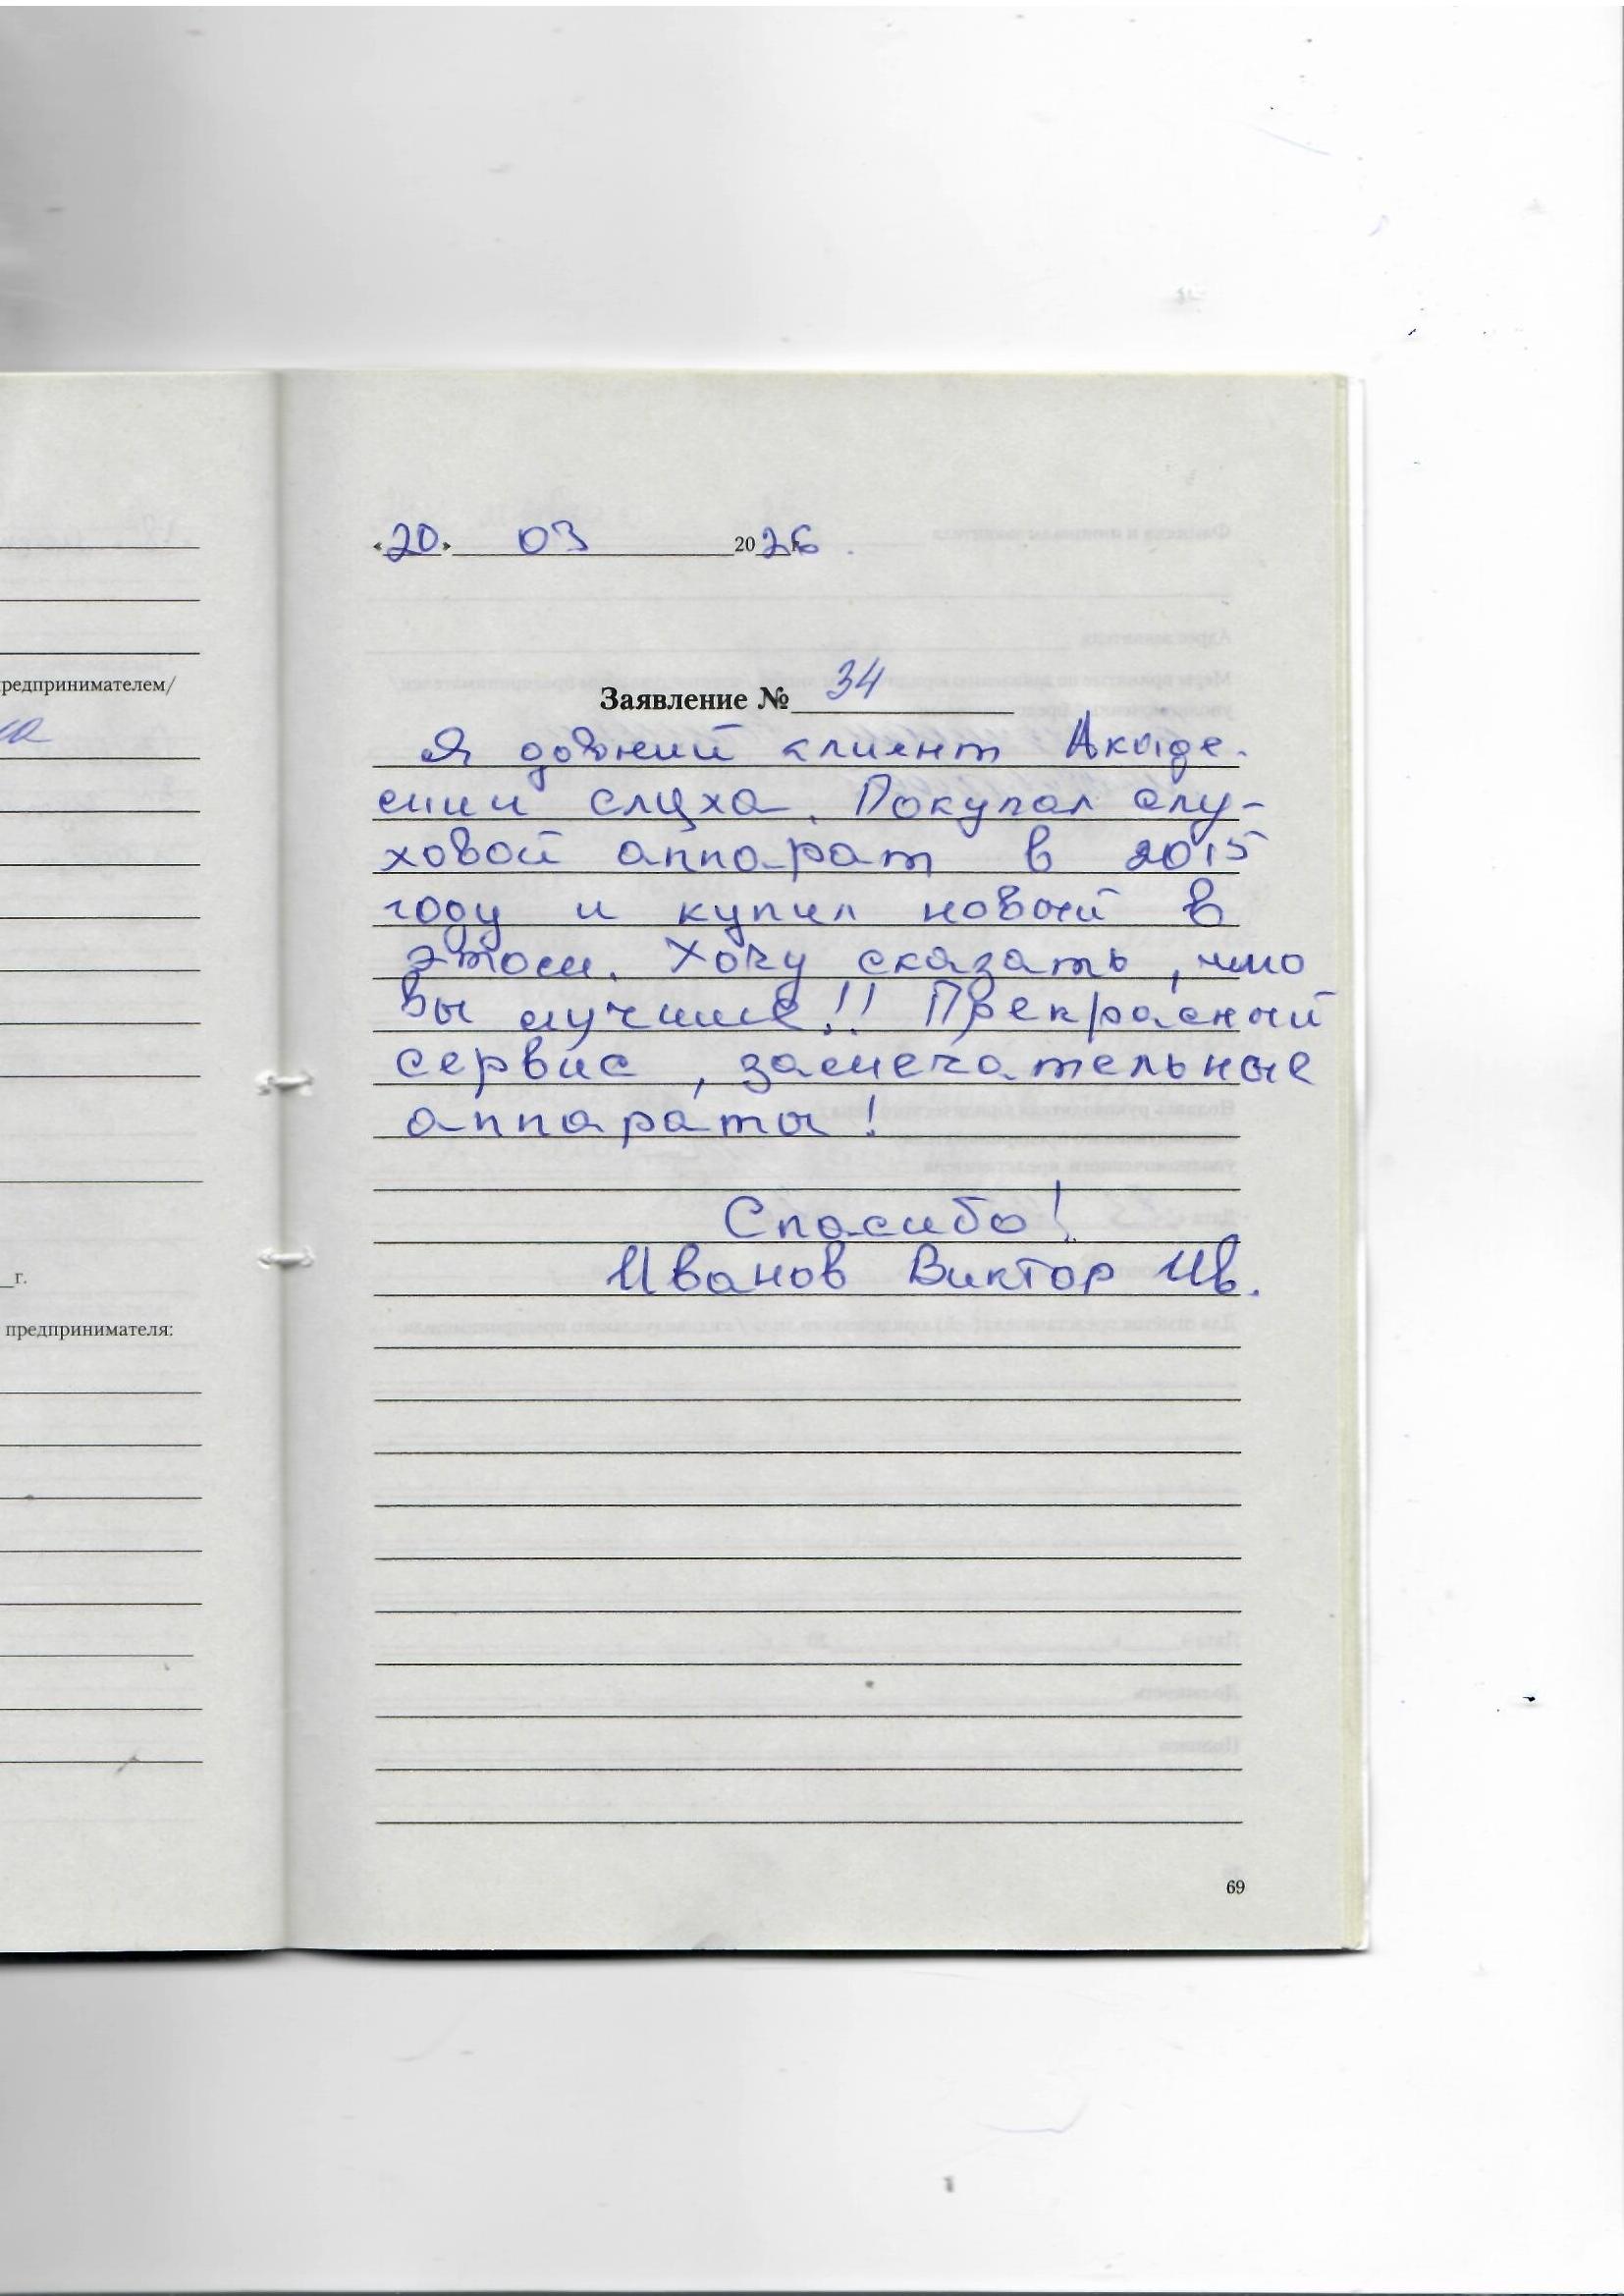 «20» 03 2026.
Заявление № 34
Я давний клиент Акаде-
мии слуха. Покупал слу-
ховой аппарат в 2015
году и купил новый в
этом. Хочу сказать, что
вы лучшие!! Прекрасный
сервис, замечательные
аппараты!
Спасибо!
Иванов Виктор Ив.
69
предпринимателем/
г.
предпринимателя: